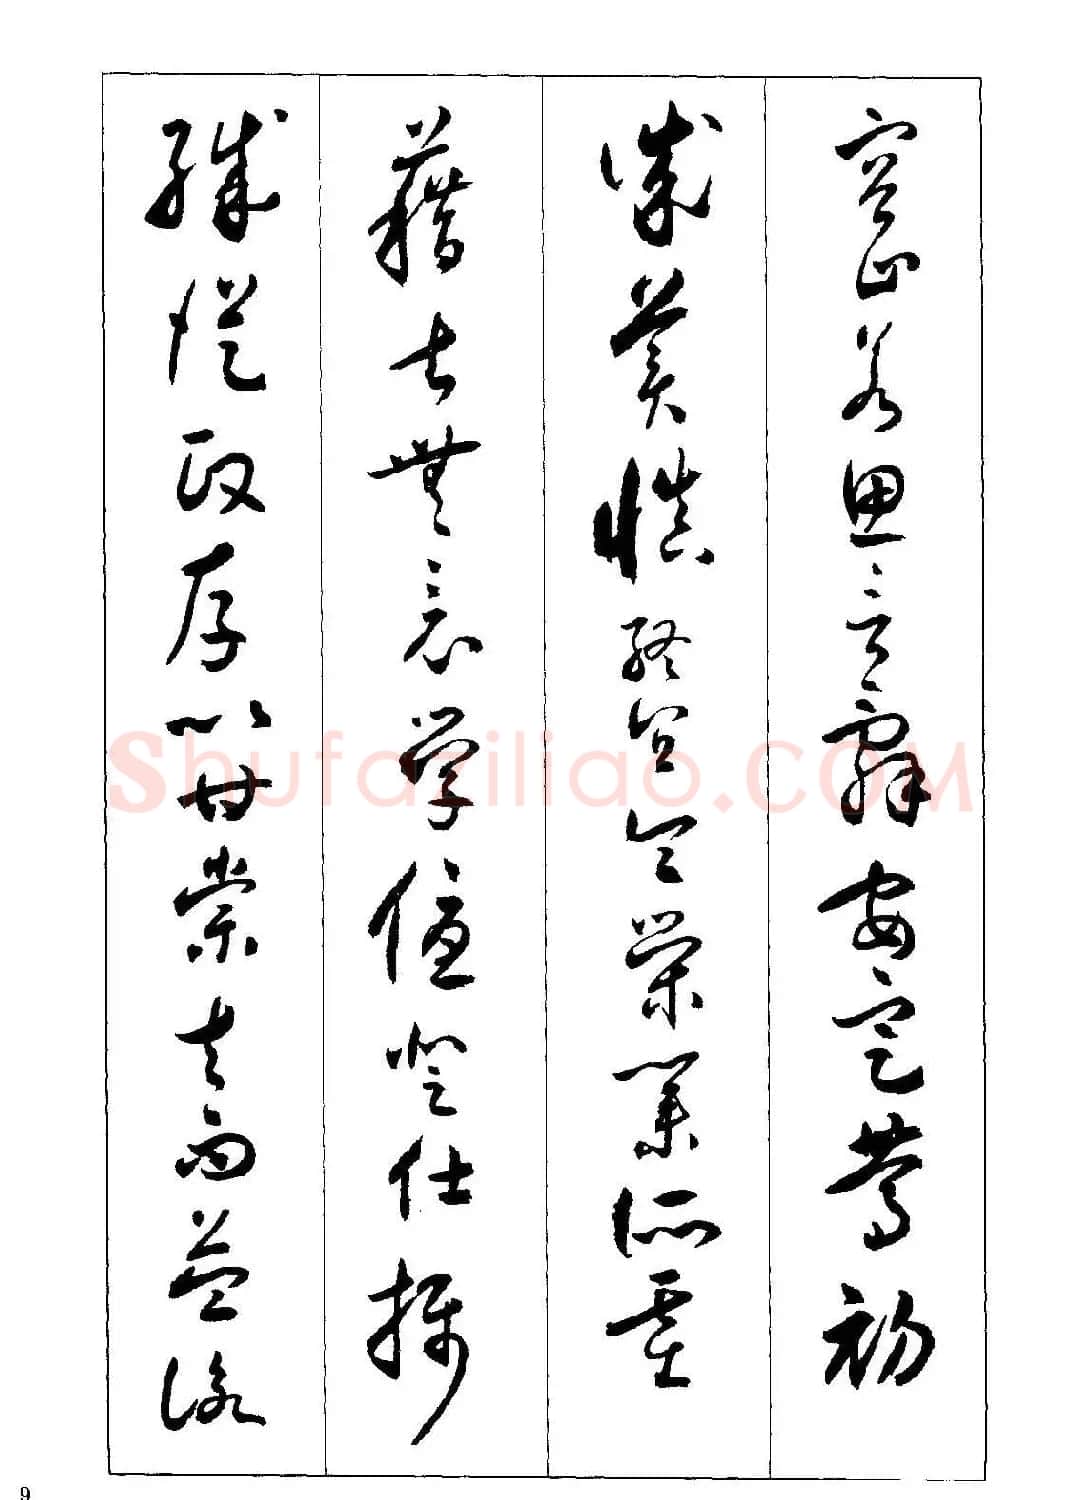 容止若思言辭安定篤初
誠美慎終宜令榮業所基
藉甚無竟學優登仕攝
職從政存以甘棠去而益詠
shufaziliao.COM
9